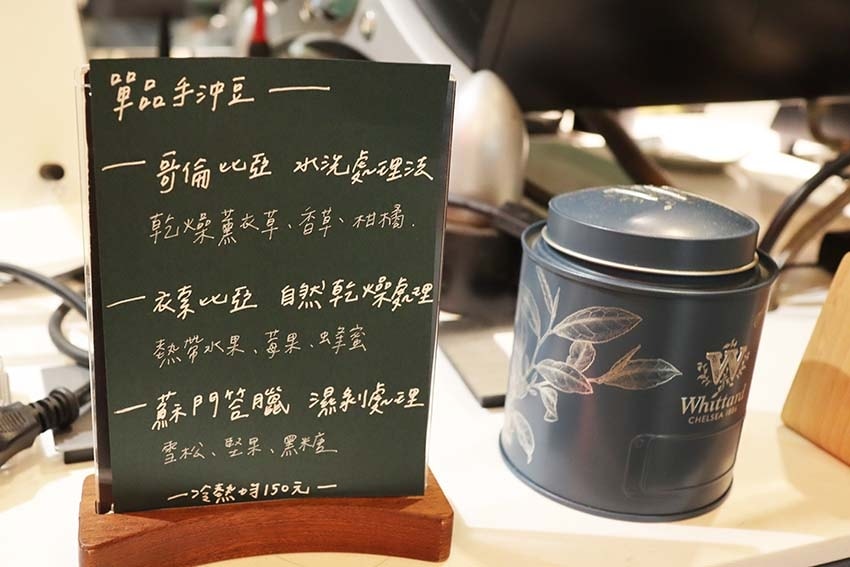 單品手沖豆 —
— 哥倫比亞 水洗處理法
乾燥薰衣草、香草、柑橘.
— 衣索比亞 自然乾燥處理
熱帶水果、莓果、蜂蜜
— 蘇門答臘 濕剝處理
雪松、堅果、黑糖
— 冷熱均150元 —
W
Whittard
CHELSEA 1886